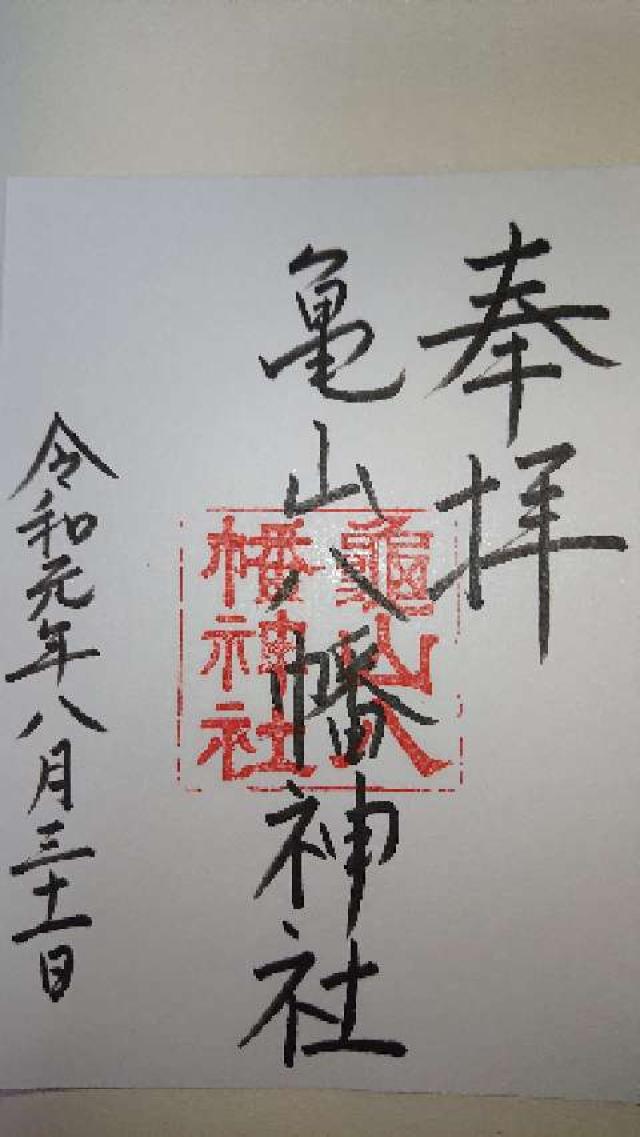 奉拝
亀山八幡神社
龜山八
幡神社
令和元年八月三十一日